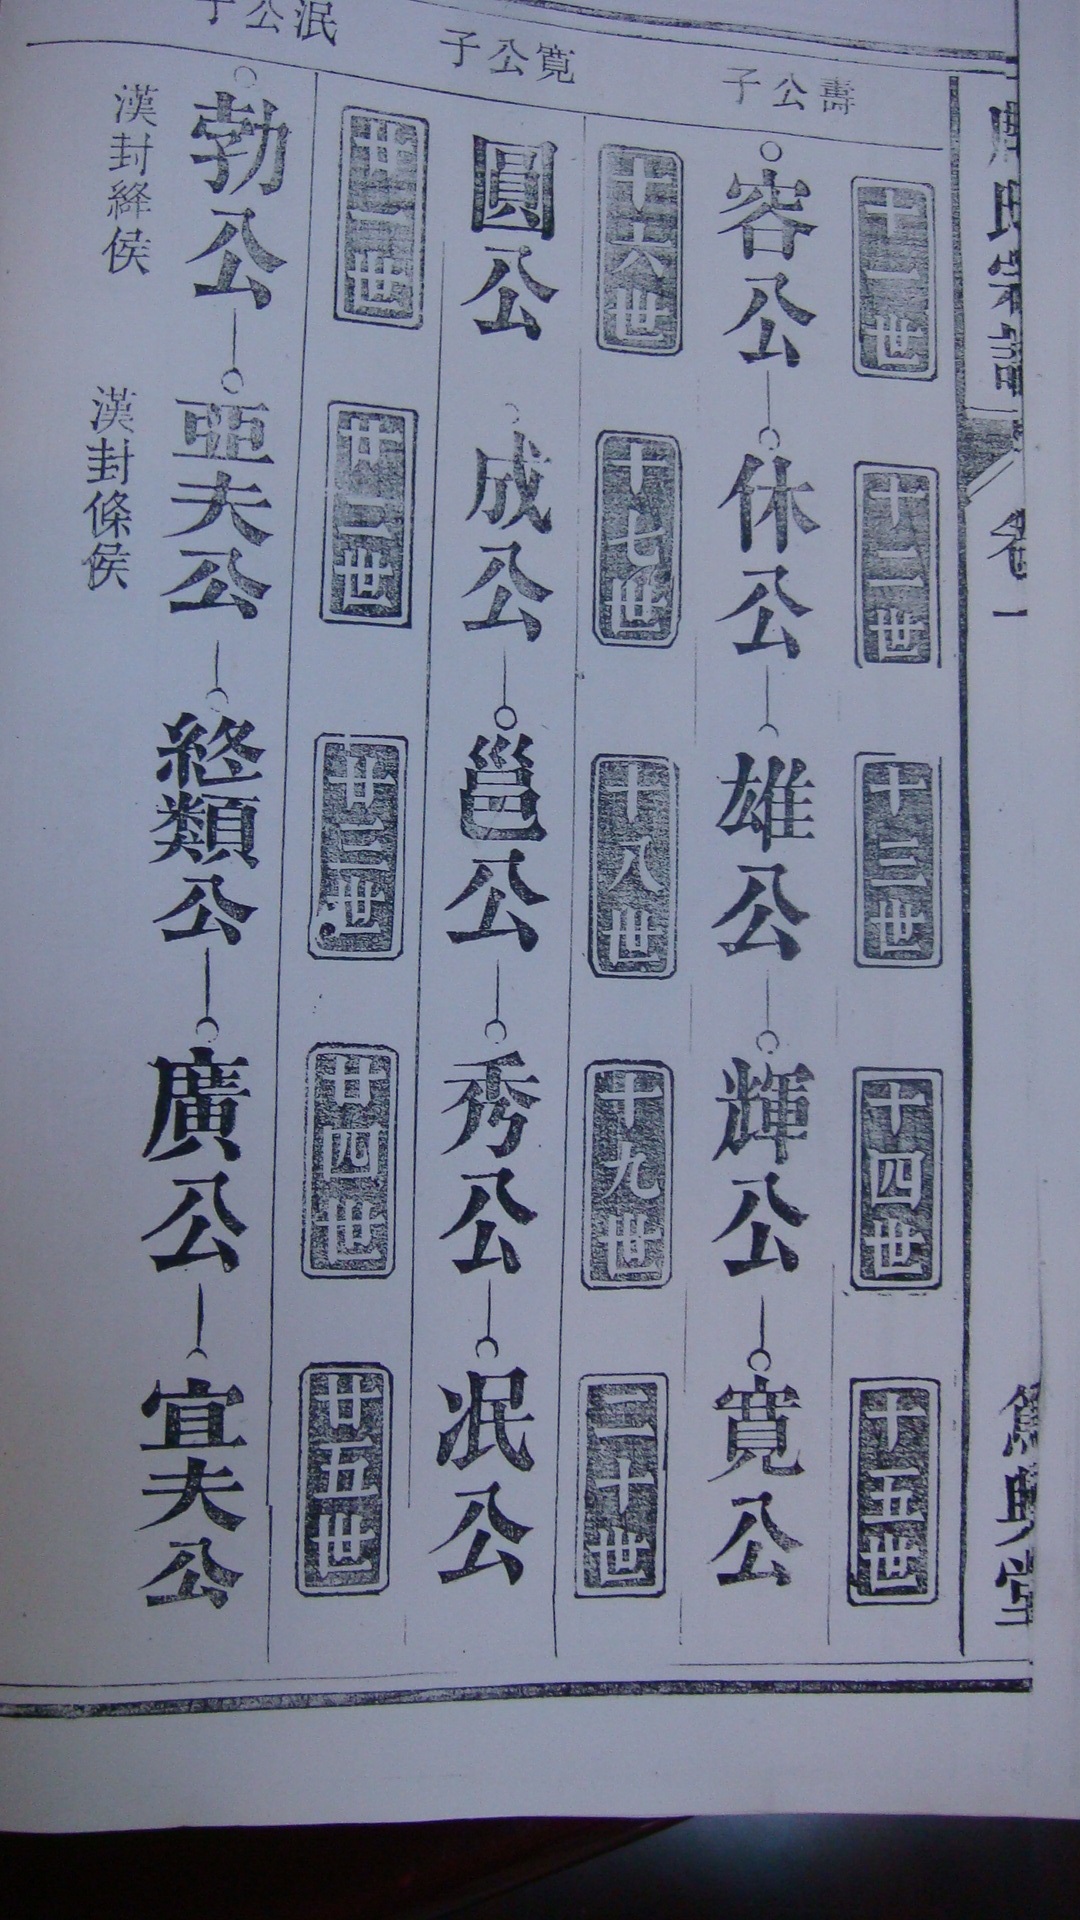 卷一
壽公子
十一世
十二世
十三世
十四世
十五世
容公
休公
雄公
輝公
寬公
寬公子
十六世
十七世
十八世
十九世
二十世
圓公
成公
邕公
秀公
泯公
泯公子
廿二世
廿三世
廿四世
廿五世
勃公
亞夫公
終類公
廣公
宜夫公
漢封絳侯
漢封條侯